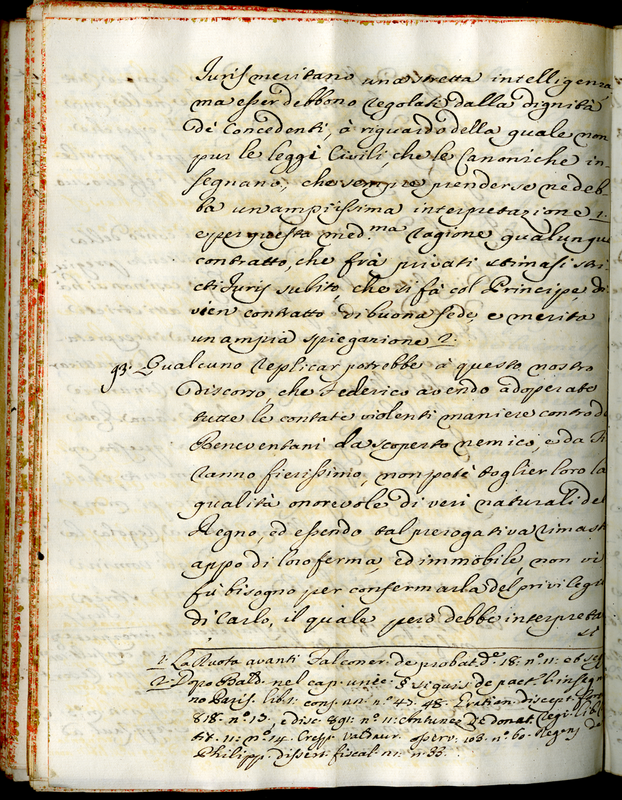 Juris meritano una stretta intelligenza
ma esser debbono regolati dalla dignità
de Concedenti, à riguardo della quale non
pur le leggi Civili, che le Canoniche in-
segnano, che sempre prenderse ne deb-
ba un ampiissima interpretazione 1.
e per questa med.ma ragione qualunque
contratto, che frà privati stimasi stri-
cti Juris subito, che si fà col Principe, di
vien contratto di buona fede, e merita
un ampia spiegazione 2.
93. Qualcuno replicar potrebbe à questo nostro
discorso, che Federico avendo adoperate
tutte le contate violenti maniere contro de
Beneventani da scoperto nemico, e da Ti
ranno fierissimo, non potè toglier loro la
qualità onorevole di veri naturali del
Regno, ed essendo tal prerogativa rimast
appo di loro ferma, ed immobile, non vi
fù bisogno per confermarla del privilegio
di Carlo, il quale però debbe interpreta
si
1. La Ruota avanti Falconer. de probat. d.e 18. n.o 11. et seq
2. Dopo Bald. nel cap. unic. § si quis de pact. l'insegn
no Paris. lib. 1. cons. n. 47. 48. discept.
818. n.o 13. e disc. 891. n.o 11. Antunez de Donat. Reg. lib.
tit. 1. n.o 14. Cresp. Valdaur. observ. 103. n.o 60. Regens de
Philipp. dissert. fiscal. n. 33.